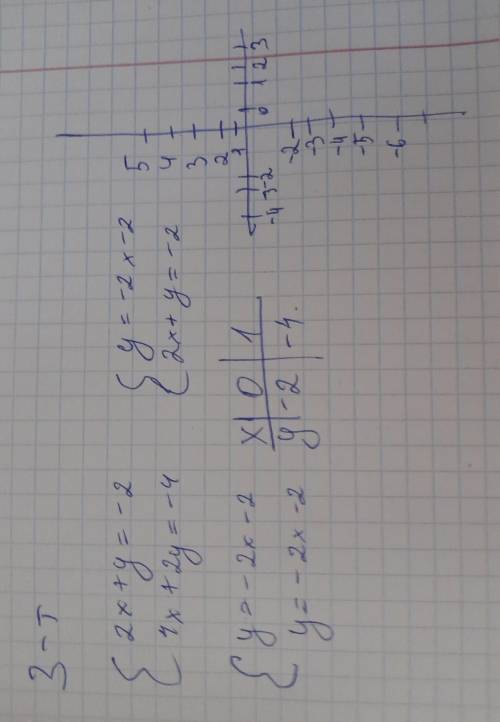 3-т
{ 2x + y = -2
4x + 2y = -4
{ y = -2x - 2
2x + y = -2
{ y = -2x - 2
y = -2x - 2
x | 0 | 1
y | -2 | -4.
5
4
3
2
1
-4 3 -2 0 1 2 3
-2
-3
-4
-5
-6